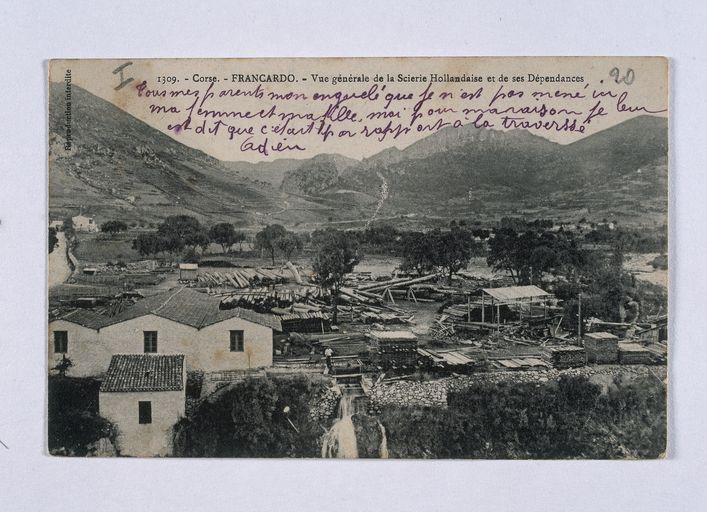 I
20
1309. - Corse. - FRANCARDO. - Vue générale de la Scierie Hollandaise et de ses Dépendances
Reproduction interdite
Tous mes parents mon enguelé que je n'est pas mené
ma femme et ma fille, moi pour ma raison je leur
est dit que c'était par rapport à la traversée
Adieu